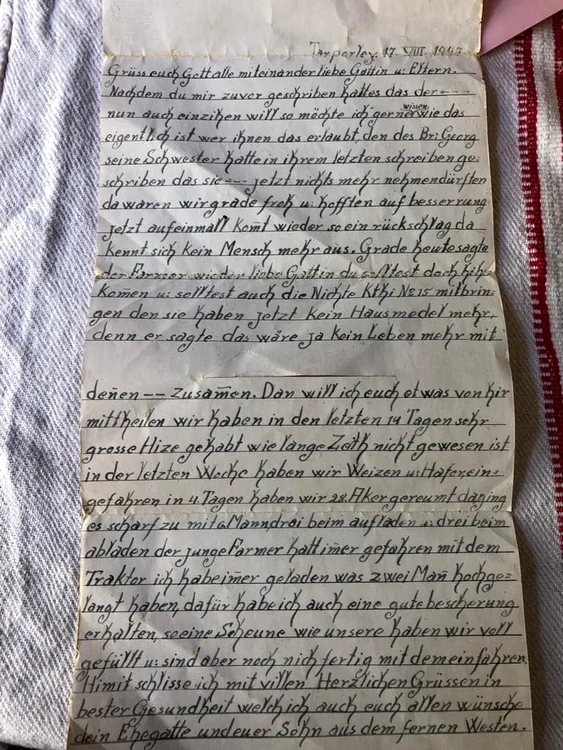 Tarporley, 17. VIII. 1947.
Grüss euch Gott alle miteinander liebe Gattin u: Eltern.
Nachdem du mir zuvor geschriben hattes das der ----
nun auch einzihen will so möchte ich gerne wissen wie das
eigentlich ist wer ihnen das erlaubt, den des Br: Georg
seine Schwester hatte in ihrem letzten schreiben ge:
schriben das sie --- jetzt nichts mehr nehmen dürften
da waren wir grade froh u: hofften auf besserrung
jetzt auf einmall komt wieder so ein rückschlag da
kennt sich kein Mensch mehr aus. Grade heute sagte
der Farmer wieder liebe Gattin du solltest doch hihr
komen u: solltest auch die Nichte Kthi No 15 mitbrin-
gen den sie haben jetzt kein Hausmedel mehr,
denn er sagte das wäre ja kein Leben mehr mit
denen --- zusamen. Dan will ich euch etwas von hir
mittheilen wir haben in den letzten 14 Tagen sehr
grosse Hize gehabt wie lange Zeith nicht gewesen ist
in der letzten Woche haben wir Weizen u: Hafer, ein=
gefahren in 4 Tagen haben wir 28. Aker gereumt da ging
es scharf zu mit 6 Mann, drei beim aufladen u: drei beim
abladen der junge Farmer hatt imer gefahren mit dem
Traktor ich habe imer geladen was zwei Man hochge=
langt haben, dafür habe ich auch eine gute bescherung
erhalten, so eine Scheune wie unsere haben wir voll
gefüllt u: sind aber noch nich fertig mit dem einfahren.
Himit schlisse ich mit villen Herzlichen Grüssen in
bester Gesundheit welch ich auch euch allen wünsche
dein Ehegatte und euer Sohn aus dem fernen Westen.